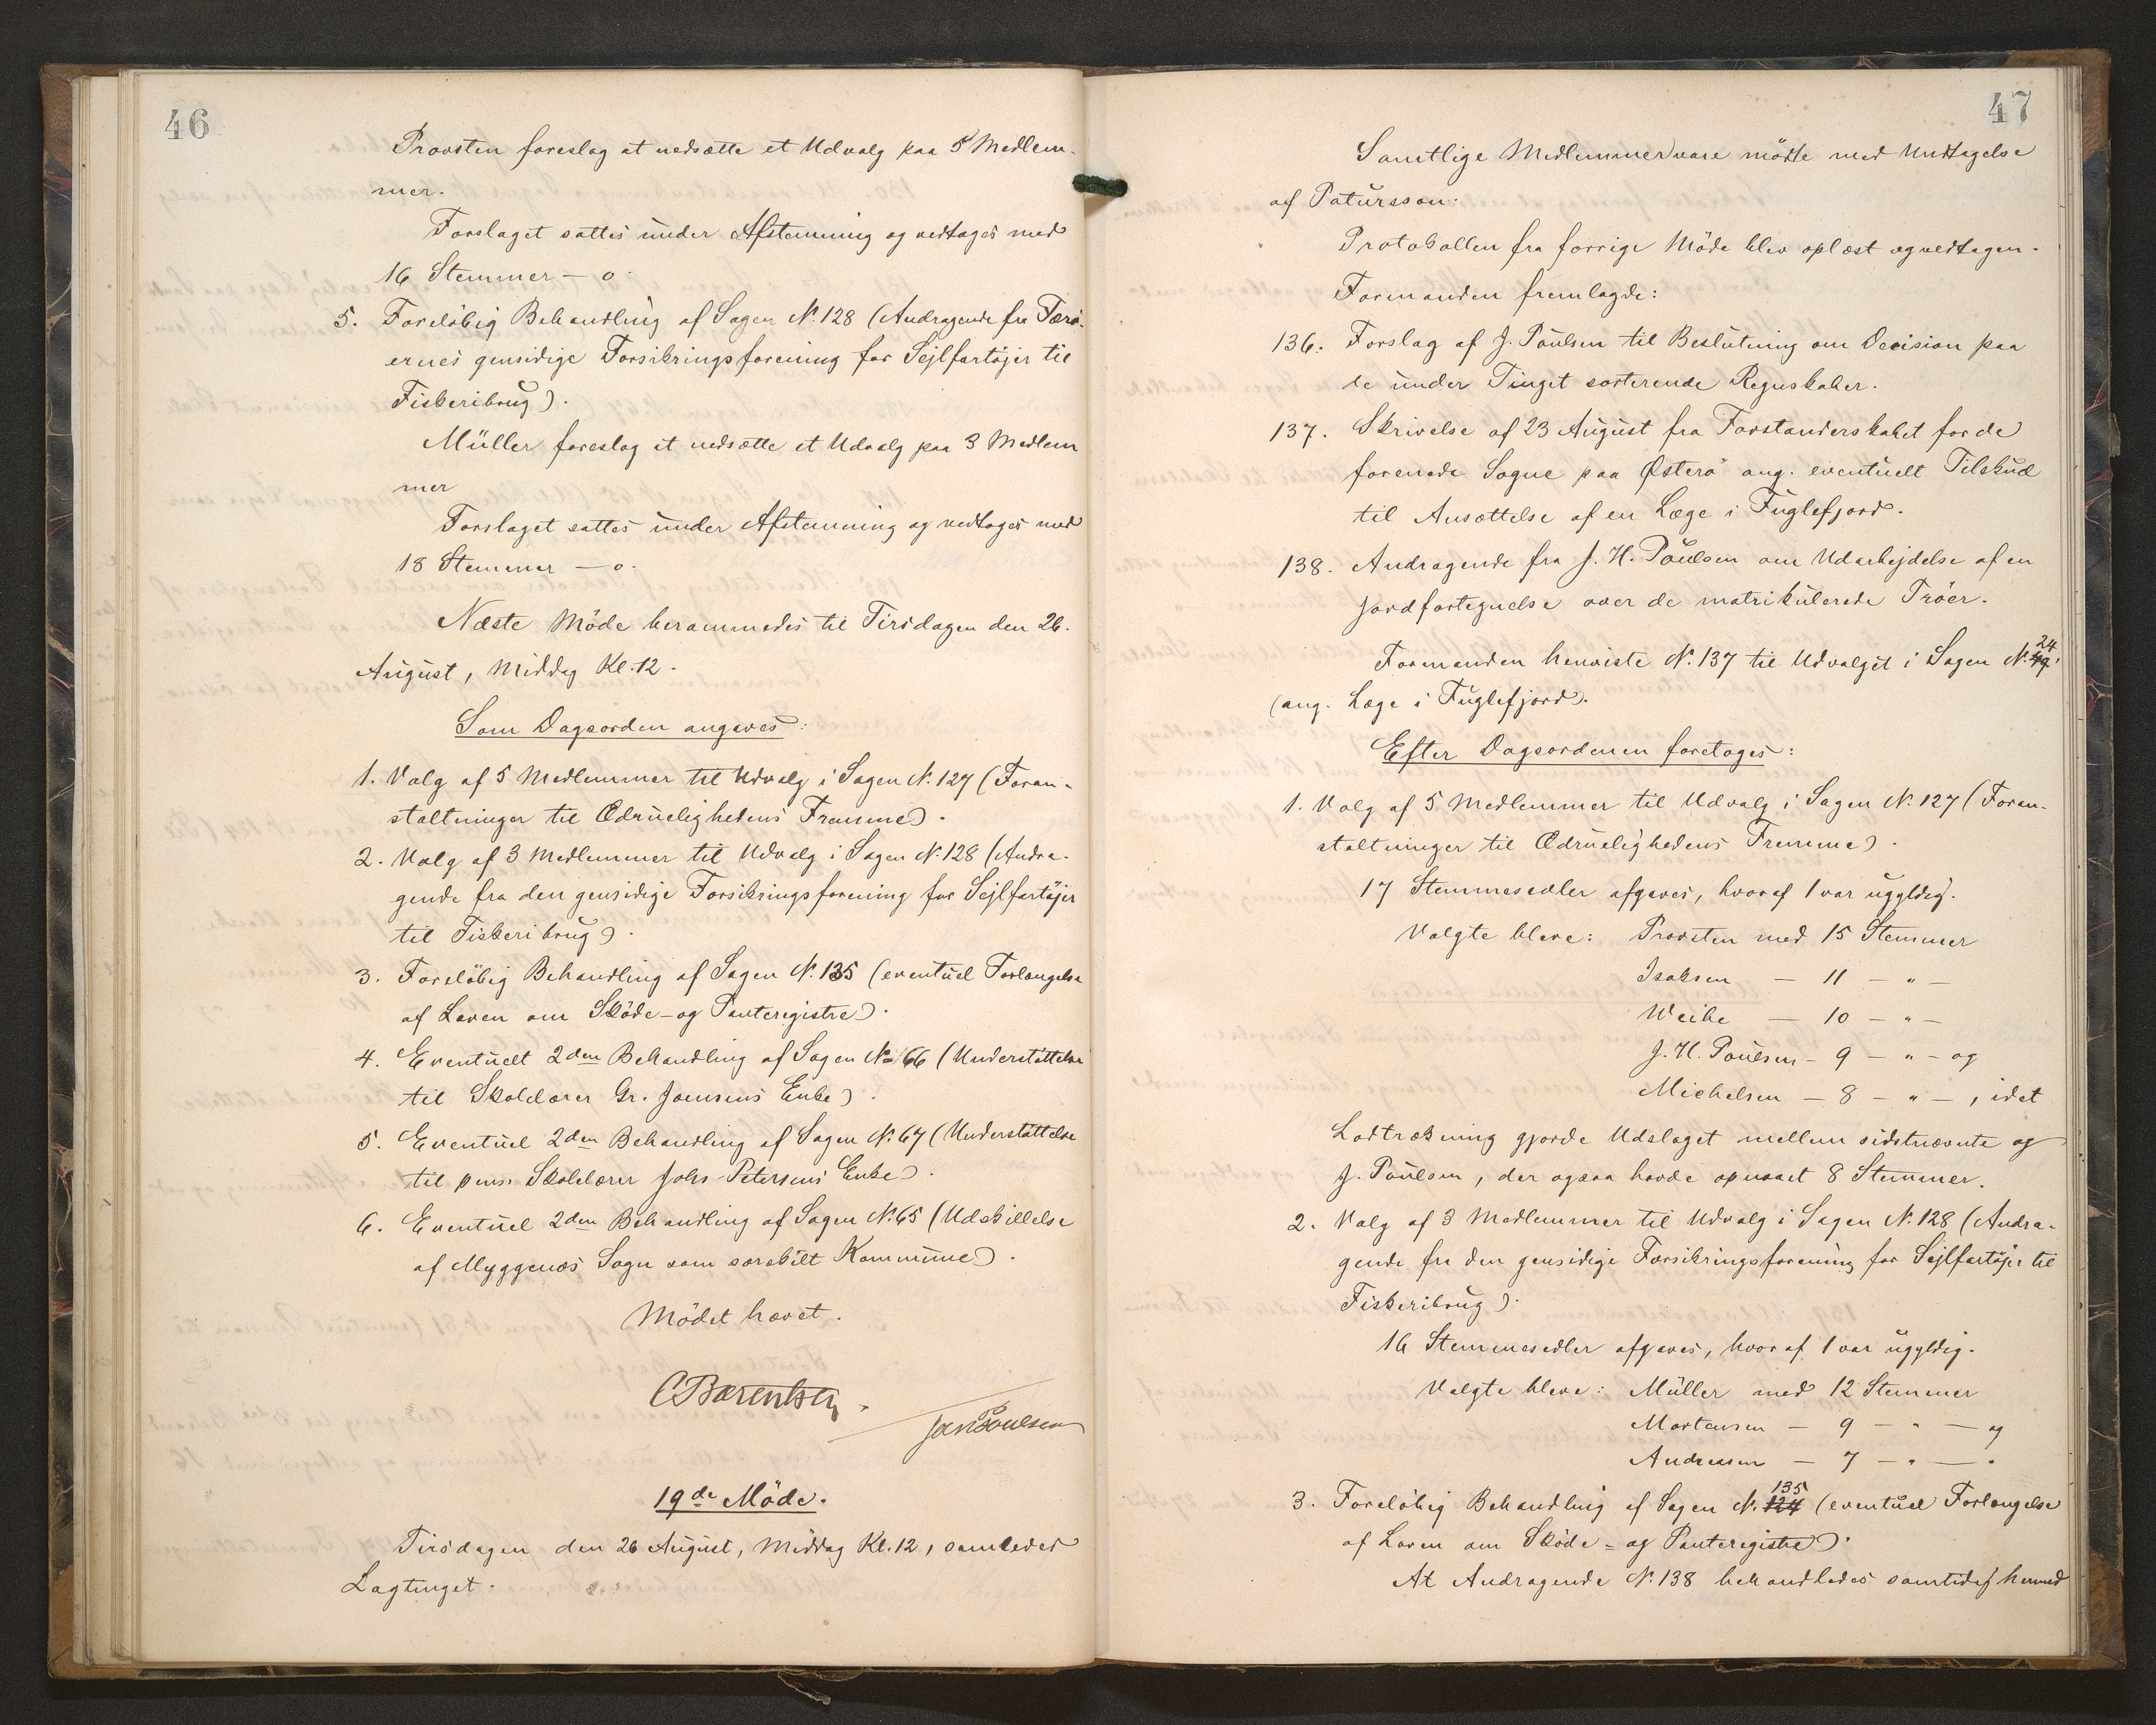 46
Provsten foreslog at nedsætte et Udvalg paa 5 Medlem-
mer.
Forslaget sattes under Afstemning og vedtoges med
16 Stemmer – o.
5. Foreløbig Behandling af Sagen N. 128 (Andragende fra Færö-
ernes gensidige Forsikringsforening for Sejlfartøjer til
Fiskeribrug).
Müller foreslog at nedsætte et Udvalg paa 3 Medlem
mer
Forslaget sattes under Afstemning og vedtoges med
18 Stemmer – o.
Næste Möde berammedes til Tirsdagen den 26.
August, Middag Kl. 12.
Som Dagsorden angaves:
1. Valg af 5 Medlemmer til Udvalg i Sagen N. 127 (Foran-
staltninger til Ædruelighedens Fremme).
2. Valg af 3 Medlemmer til Udvalg i Sagen N. 128 (Andra-
gende fra den gensidige Forsikringsforening for Sejlfartøjer
til Fiskeribrug).
3. Foreløbig Behandling af Sagen N. 135 (eventuel Forlængelse
af Loven om Sköde- og Panteregistre).
4. Eventuelt 2den Behandling af Sagen No 66 (Understøttelse
til Skolelærer Gr. Joensens Enke).
5. Eventuel 2den Behandling af Sagen N. 67 (Understøttelse
til pens. Skolelærer Johs Petersens Enke).
6. Eventuel 2den Behandling af Sagen N. 65 (Udskillelse
af Myggenæs Sogn som særskilt Kommune).
Mödet hævet.
C Bærentsen.
Joen Poulsen
19de Möde.
Tirsdagen den 26 August, Middag Kl. 12, samledes
Lagtinget.
47
Samtlige Medlemmer vare mödte med Undtagelse
af Patursson.
Protokollen fra forrige Möde blev oplæst og vedtagen.
Formanden fremlagde:
136. Forslag af J. Poulsen til Beslutning om Decision paa
de under Tinget sorterende Regnskaber.
137. Skrivelse af 23 August fra Forstanderskabet for de
forenede Sogne paa Østerö ang. eventuelt Tilskud
til Ansættelse af en Læge i Fuglefjord.
138. Andragende fra J. H. Poulsen om Udarbejdelse af en
Jordfortegnelse over de matrikulerede Tröer.
Formanden henviste N. 137 til Udvalget i Sagen N. 24
(ang. Læge i Fuglefjord).
Efter Dagsordenen foretoges:
1. Valg af 5 Medlemmer til Udvalg i Sagen N. 127 (Foran-
staltninger til Ædruelighedens Fremme).
17 Stemmesedler afgaves, hvoraf 1 var ugyldig.
Valgte bleve: Provsten med 15 Stemmer
Isaksen – 11 – " –
Weihe – 10 – " –
J. H. Poulsen – 9 – " – og
Michelsen – 8 – " – , idet
Lodtrækning gjorde Udslaget mellem sidstnævnte og
J. Poulsen, der ogsaa havde opnaaet 8 Stemmer.
2. Valg af 3 Medlemmer til Udvalg i Sagen N. 128 (Andra-
gende fra den gensidige Forsikringsforening for Sejlfartøjer til
Fiskeribrug).
16 Stemmesedler afgaves, hvoraf 1 var ugyldig.
Valgte bleve: Müller med 12 Stemmer
Mortensen – 9 – " – og
Andreasen – 7 – " – .
3. Foreløbig Behandling af Sagen N. 124 135 (eventuel Forlængelse
af Loven om Sköde- og Panteregistre).
At Andragende N. 138 behandledes samtidig hermed